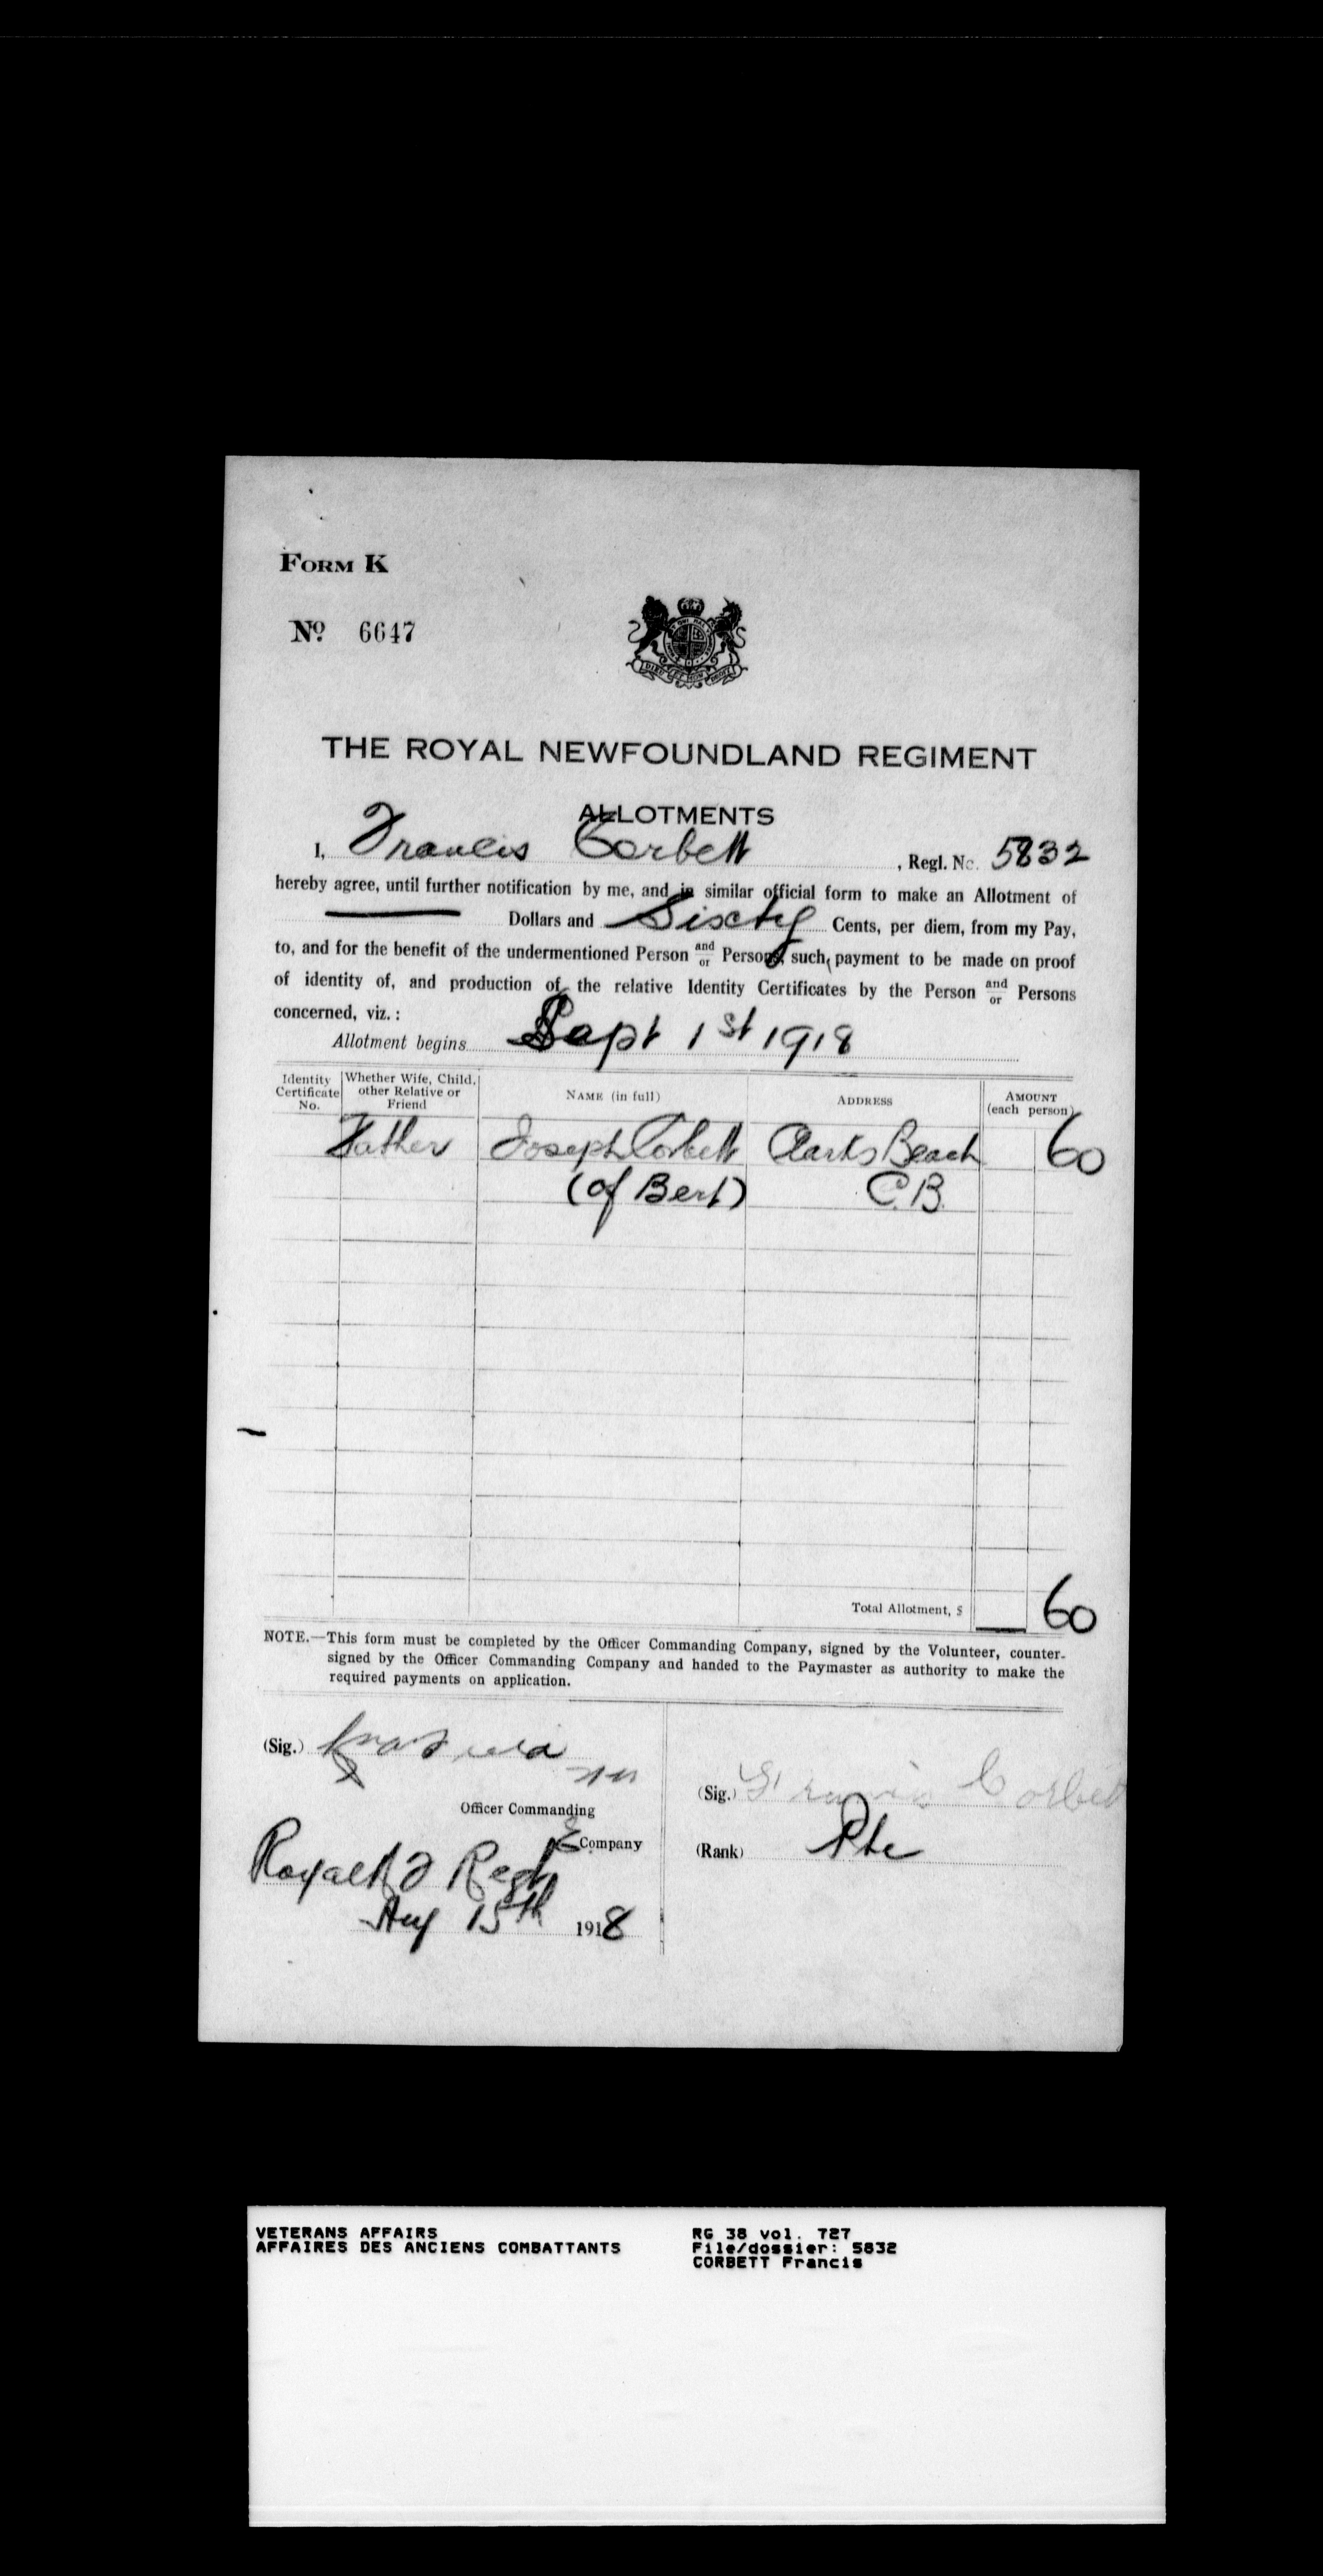 FORM K
No. 6647
THE ROYAL NEWFOUNDLAND REGIMENT
ALLOTMENTS
I, Francis Corbett, Regl. No. 5832
hereby agree, until further notification by me, and in similar official form to make an Allotment of
Dollars and Sixty Cents, per diem, from my Pay,
to, and for the benefit of the undermentioned Person and/or Persons, such payment to be made on proof
of identity of, and production of the relative Identity Certificates by the Person and/or Persons
concerned, viz. :
Allotment begins Sept 1st 1918
Identity Certificate No. Whether Wife, Child, other Relative or Friend NAME (in full) ADDRESS AMOUNT (each person)
Father Joseph Corbett Clarks Beach 60
(of Bert) C.B.
Total Allotment, $ 60
NOTE.—This form must be completed by the Officer Commanding Company, signed by the Volunteer, counter-
signed by the Officer Commanding Company and handed to the Paymaster as authority to make the
required payments on application.
(Sig.)
(Sig.) Francis Corbett
Officer Commanding
Company
(Rank) Pte
Royal Nfld Regt
Aug 15th 1918
VETERANS AFFAIRS RG 38 vol. 727
AFFAIRES DES ANCIENS COMBATTANTS File/dossier: 5832
CORBETT Francis